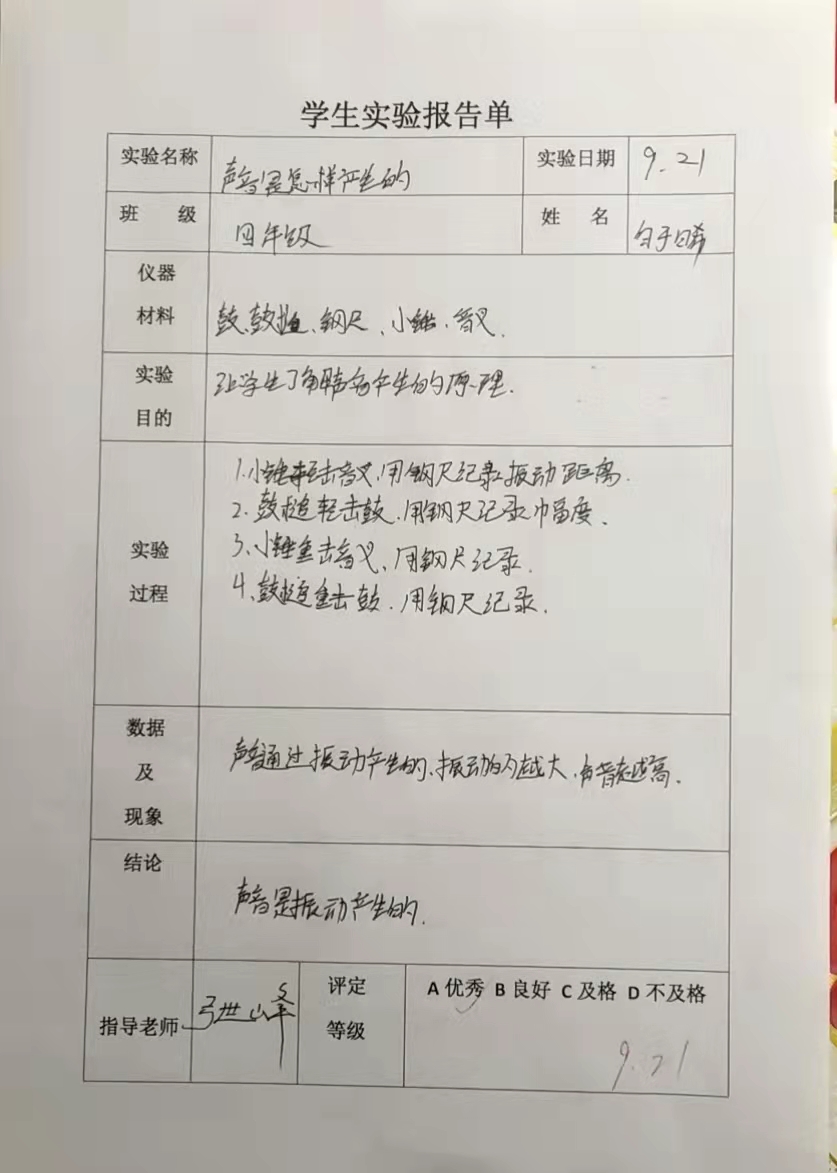 学生实验报告单
实验名称 声音是怎样产生的 实验日期 9.21
班 级 四年级 姓 名 白于曦
仪器
材料 鼓、鼓槌、钢尺、小锤、音叉.
实验
目的 让学生了解声音产生的原理.
实验
过程
1.小锤轻击音叉,用钢尺纪录振动距离.
2.鼓槌轻击鼓.用钢尺纪录巾畐度.
3、小锤重击音叉、用钢尺纪录.
4、鼓槌重击鼓.用钢尺纪录.
数据
及
现象
声音通过振动产生的、振动的越大,声音越高.
结论
声音是振动产生的.
指导老师 弓世峰 评定
等级
A 优秀 B 良好 C 及格 D 不及格
9.21